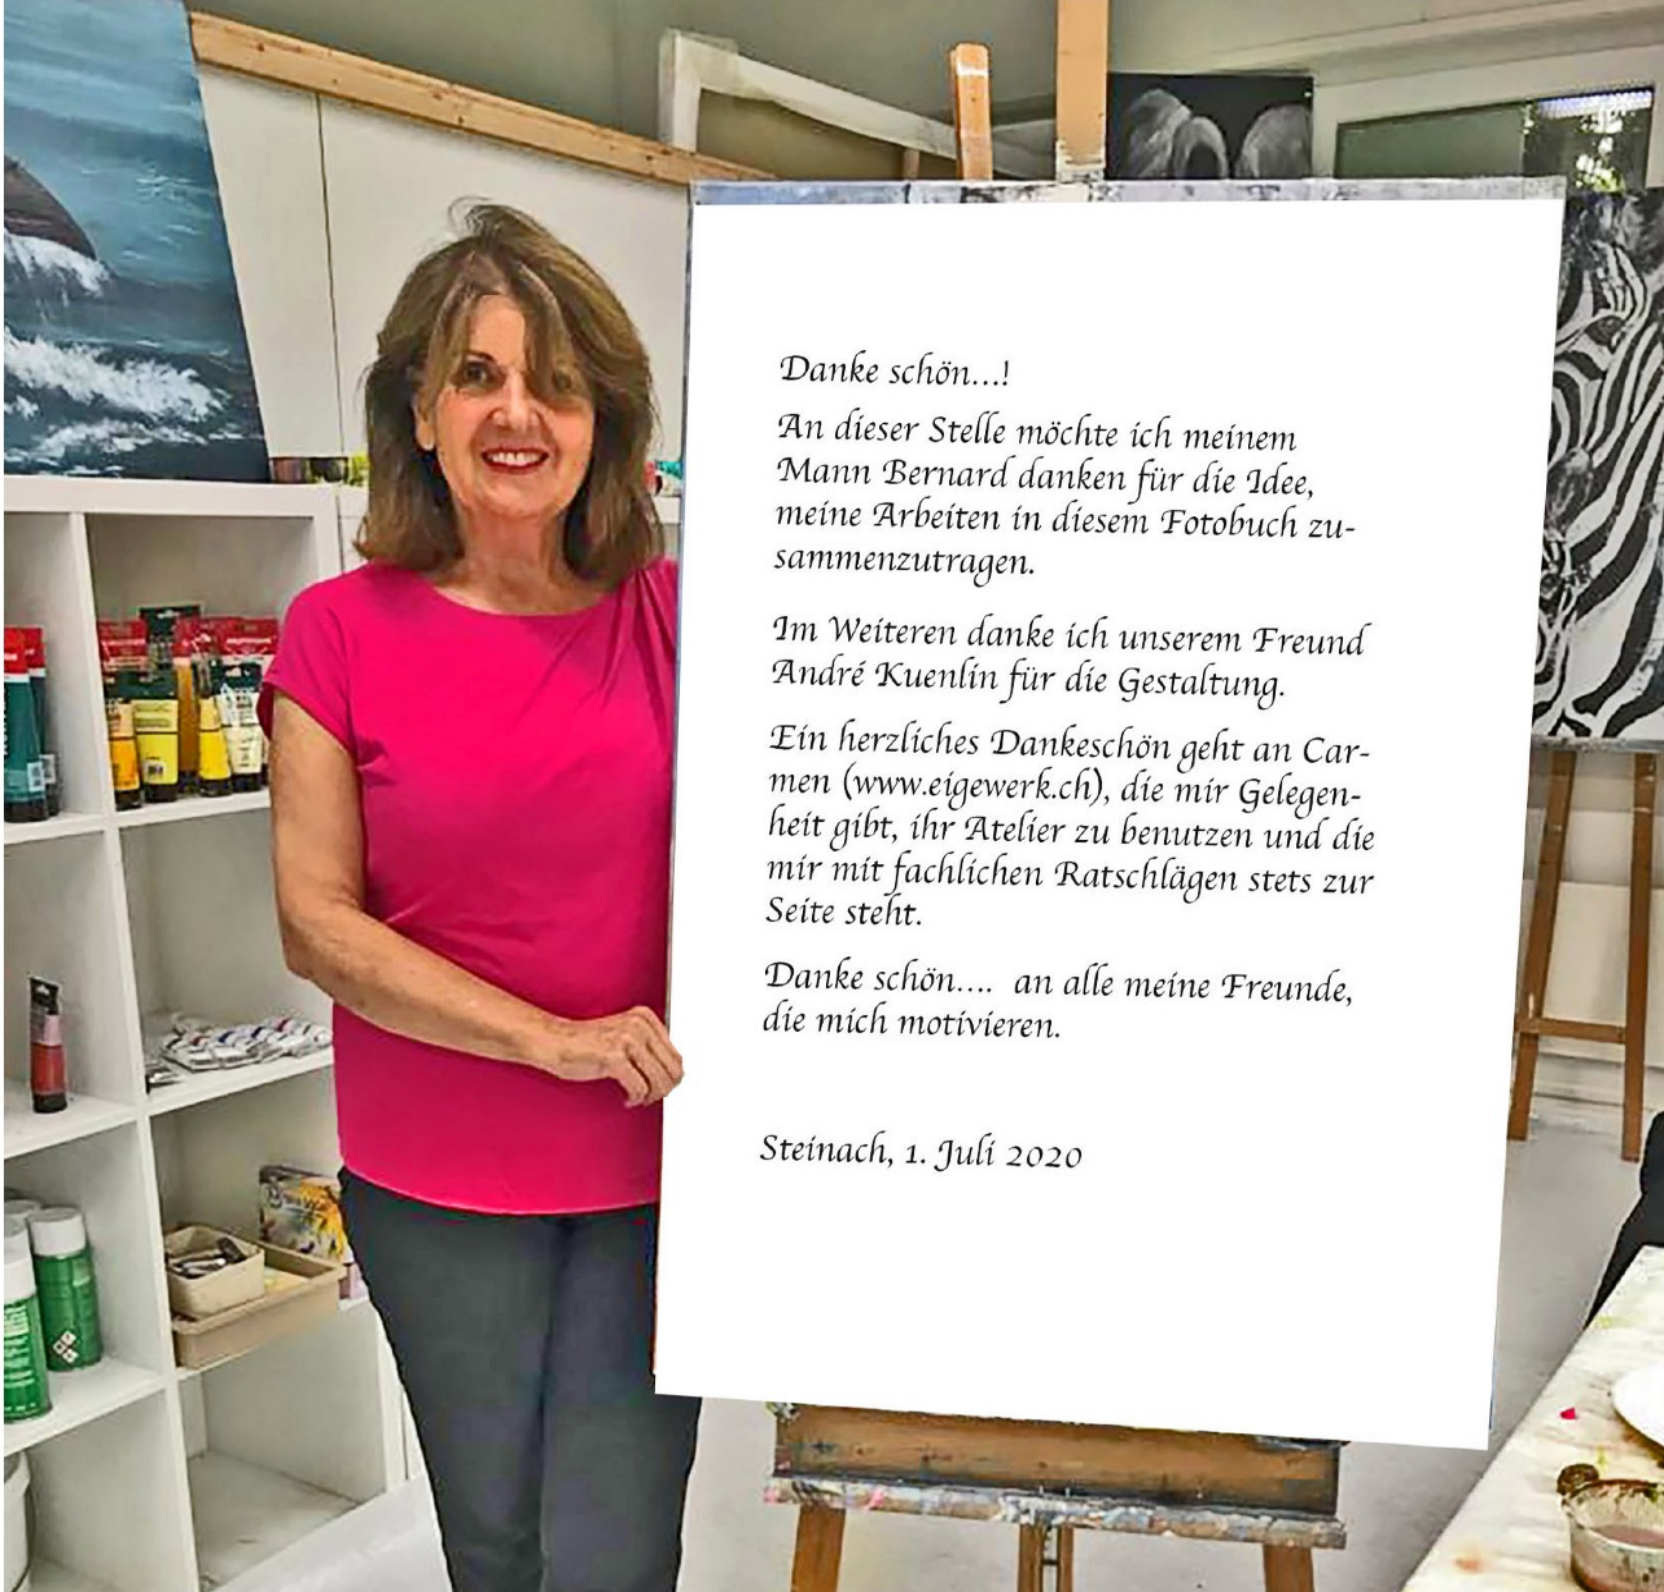 Danke schön...!
An dieser Stelle möchte ich meinem
Mann Bernard danken für die Idee,
meine Arbeiten in diesem Fotobuch zu-
sammenzutragen.
Im Weiteren danke ich unserem Freund
André Kuenlin für die Gestaltung.
Ein herzliches Dankeschön geht an Car-
men (www.eigewerk.ch), die mir Gelegen-
heit gibt, ihr Atelier zu benutzen und die
mir mit fachlichen Ratschlägen stets zur
Seite steht.
Danke schön.... an alle meine Freunde,
die mich motivieren.
Steinach, 1. Juli 2020